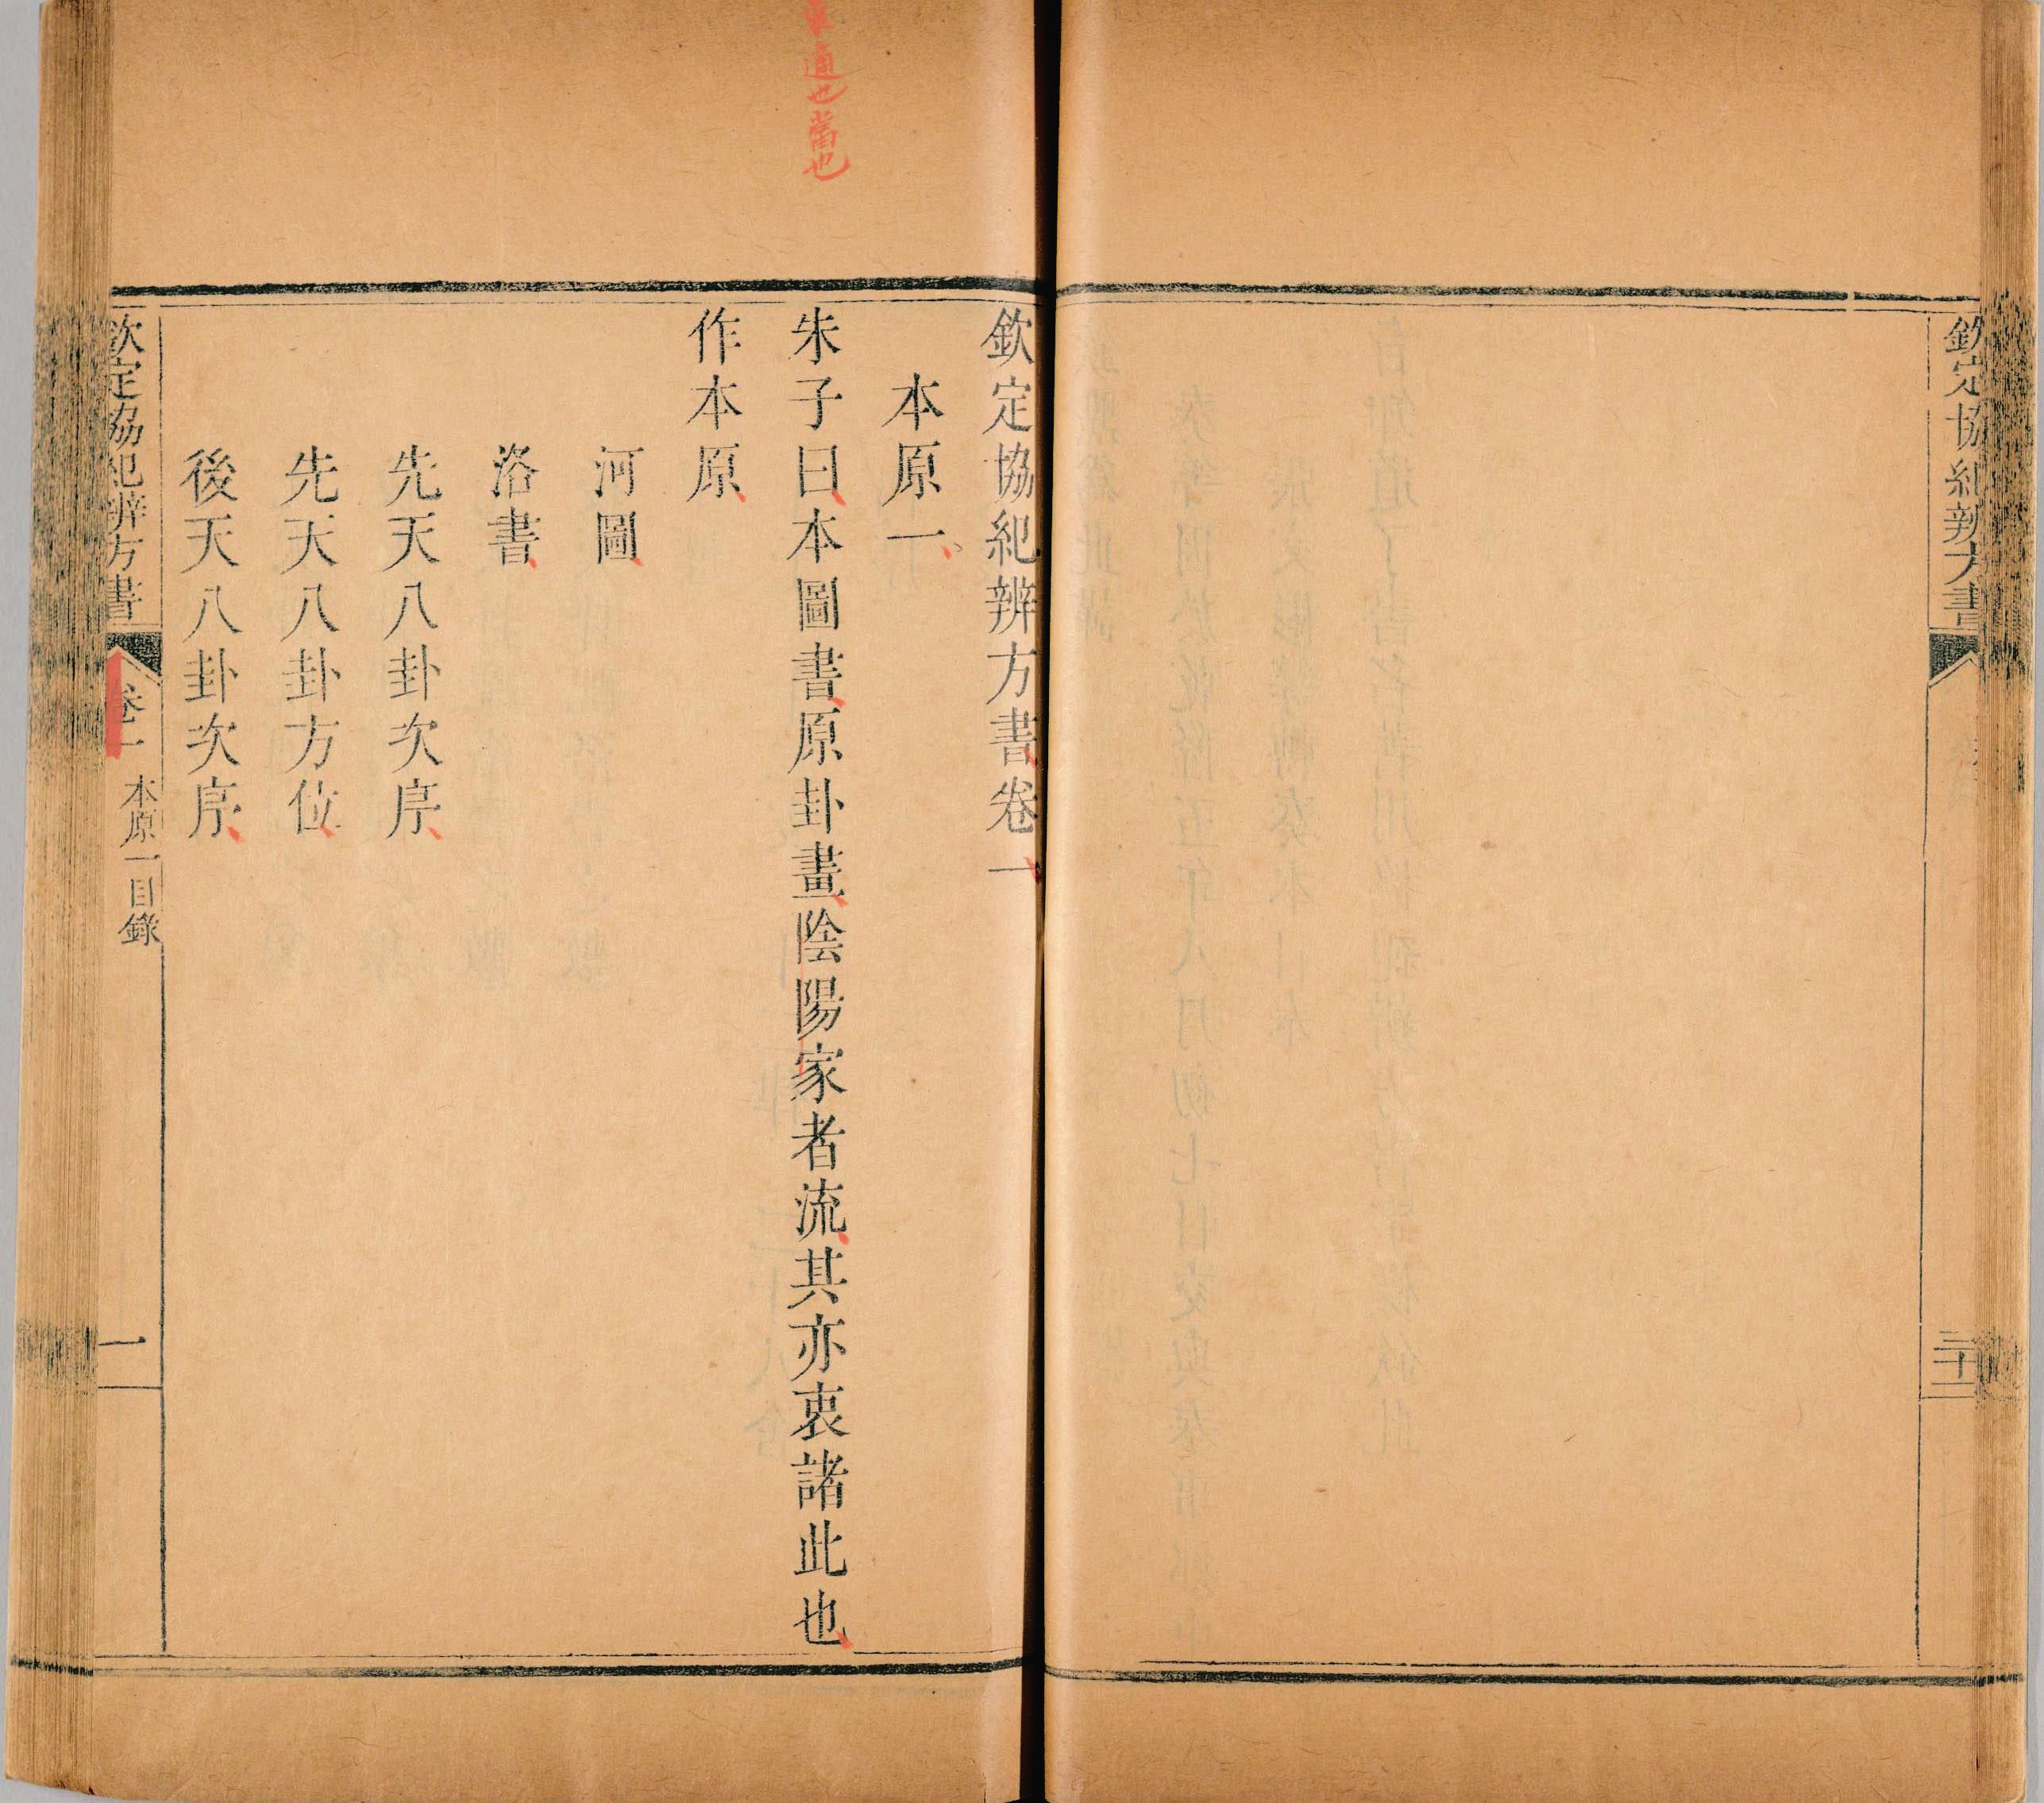 欽定協紀辨方書
三十一
欽定協紀辨方書卷一
本原一
朱子曰本圖書原卦畫陰陽家者流其亦衷諸此也
作本原
河圖
洛書
先天八卦次序
先天八卦方位
後天八卦次序
欽定協紀辨方書 卷一 本原一目錄 一
適也當也